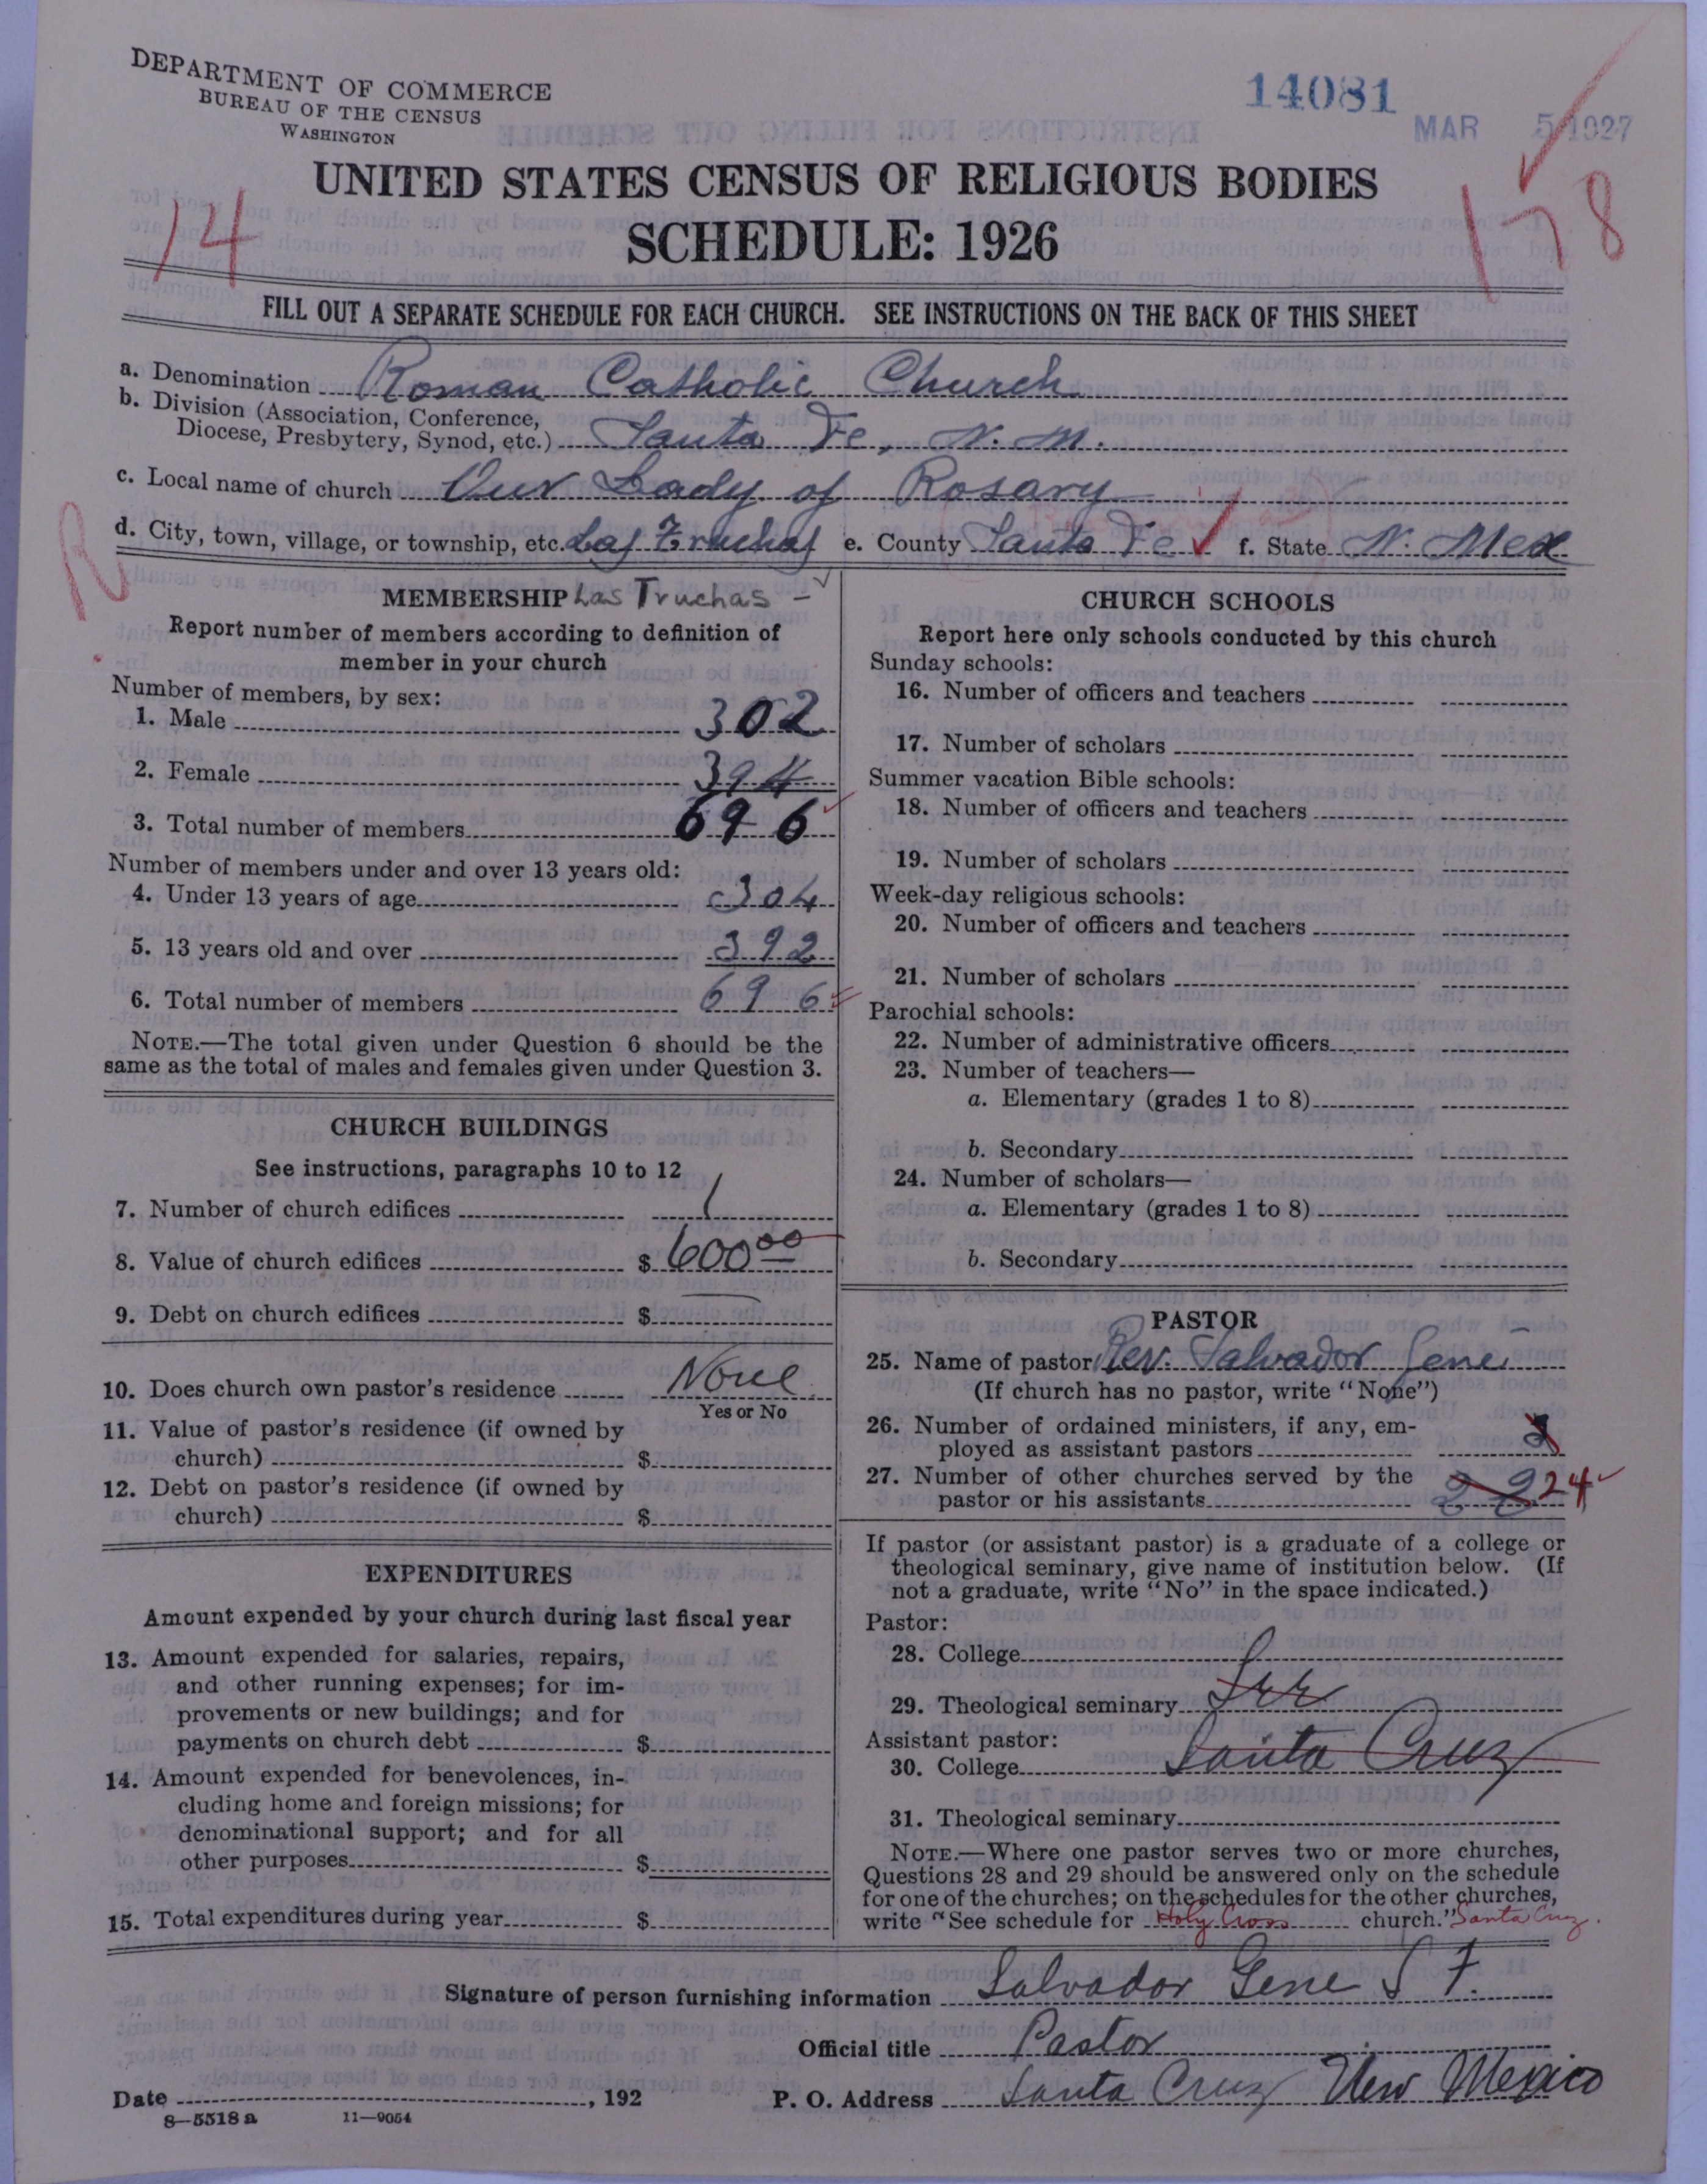 DEPARTMENT OF COMMERCE
BUREAU OF THE CENSUS
WASHINGTON
14081
MAR 5 1927
UNITED STATES CENSUS OF RELIGIOUS BODIES
SCHEDULE: 1926
14
178
FILL OUT A SEPARATE SCHEDULE FOR EACH CHURCH. SEE INSTRUCTIONS ON THE BACK OF THIS SHEET
a. Denomination Roman Catholic Church
b. Division (Association, Conference,
Diocese, Presbytery, Synod, etc.) Santa Fe, N. M.
c. Local name of church Our Lady of Rosary
R
d. City, town, village, or township, etc. Las Truchas e. County Santa Fe f. State N. Mex
MEMBERSHIP Las Truchas -
Report number of members according to definition of
member in your church
Number of members, by sex:
1. Male 302
2. Female 394
3. Total number of members 696
Number of members under and over 13 years old:
4. Under 13 years of age 304
5. 13 years old and over 392
6. Total number of members 696
NOTE.—The total given under Question 6 should be the
same as the total of males and females given under Question 3.
CHURCH BUILDINGS
See instructions, paragraphs 10 to 12
7. Number of church edifices 1
8. Value of church edifices $ 600 00
9. Debt on church edifices $
10. Does church own pastor's residence None
Yes or No
11. Value of pastor's residence (if owned by
church) $
12. Debt on pastor's residence (if owned by
church) $
EXPENDITURES
Amount expended by your church during last fiscal year
13. Amount expended for salaries, repairs,
and other running expenses; for im-
provements or new buildings; and for
payments on church debt $
14. Amount expended for benevolences, in-
cluding home and foreign missions; for
denominational support; and for all
other purposes $
15. Total expenditures during year $
CHURCH SCHOOLS
Report here only schools conducted by this church
Sunday schools:
16. Number of officers and teachers
17. Number of scholars
Summer vacation Bible schools:
18. Number of officers and teachers
19. Number of scholars
Week-day religious schools:
20. Number of officers and teachers
21. Number of scholars
Parochial schools:
22. Number of administrative officers
23. Number of teachers—
a. Elementary (grades 1 to 8)
b. Secondary
24. Number of scholars—
a. Elementary (grades 1 to 8)
b. Secondary
PASTOR
25. Name of pastor Rev. Salvador Gene
(If church has no pastor, write "None")
26. Number of ordained ministers, if any, em-
ployed as assistant pastors
27. Number of other churches served by the
pastor or his assistants 24
If pastor (or assistant pastor) is a graduate of a college or
theological seminary, give name of institution below. (If
not a graduate, write "No" in the space indicated.)
Pastor:
28. College
29. Theological seminary See
Assistant pastor:
30. College Santa Cruz
31. Theological seminary
NOTE.—Where one pastor serves two or more churches,
Questions 28 and 29 should be answered only on the schedule
for one of the churches; on the schedules for the other churches,
write "See schedule for Holy Cross church." Santa Cruz.
Signature of person furnishing information Salvador Gene S F.
Official title Pastor
Date , 192 P. O. Address Santa Cruz New Mexico
8—5518 a 11—9054